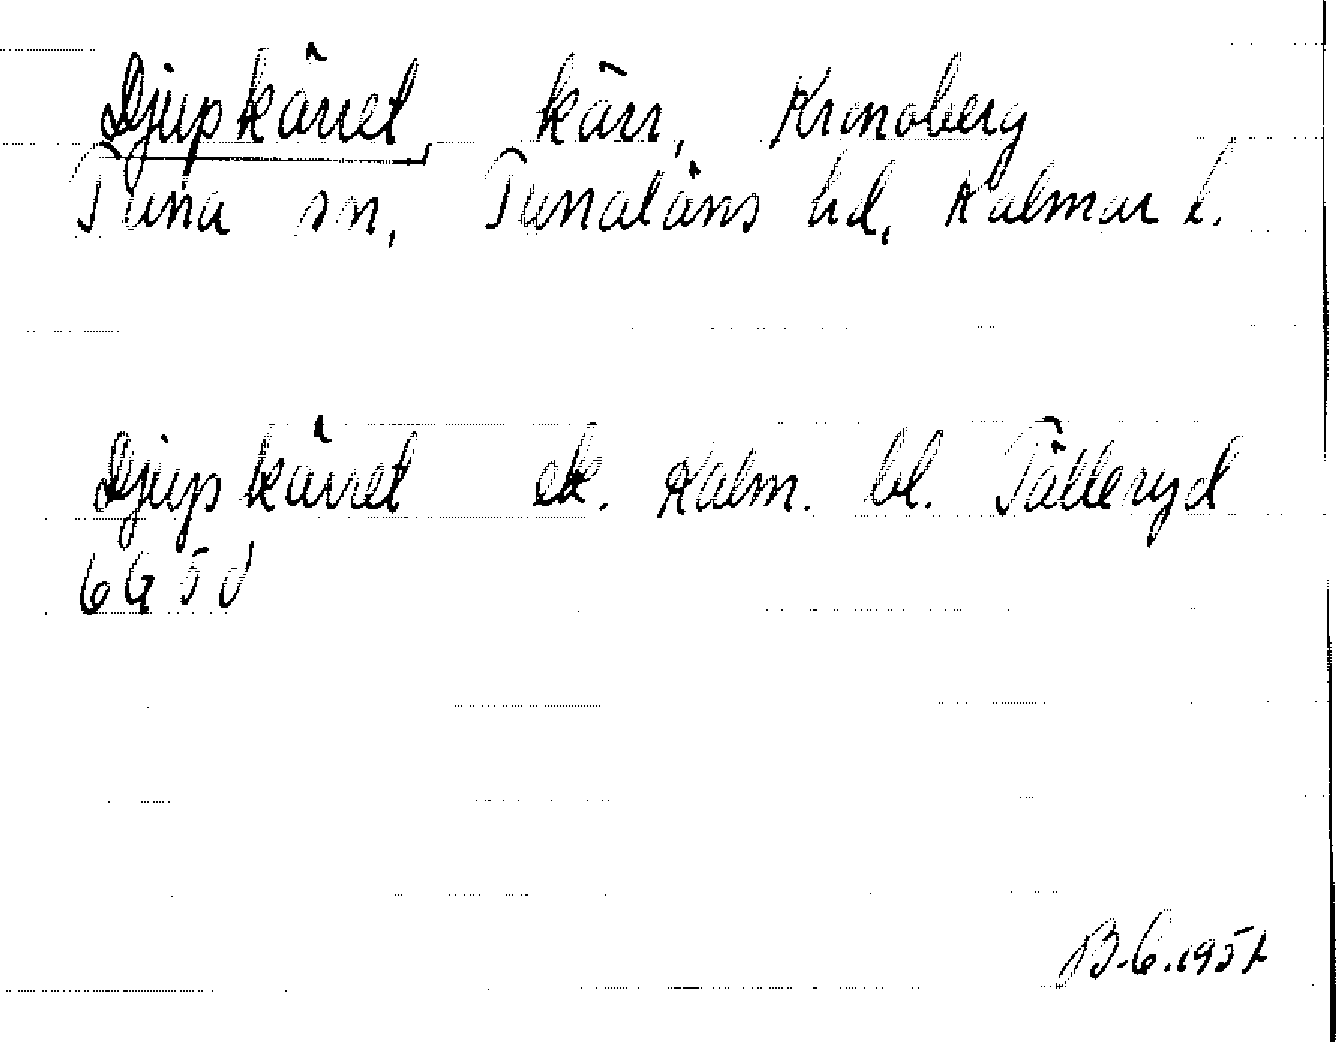 Djupkärret, kärr, Kronoberg
Tuna sn, Tunaläns hd, Kalmar l.
Djupkärret ek. Kalm. bl. Tålleryd
6G 5d
B.G. 1951